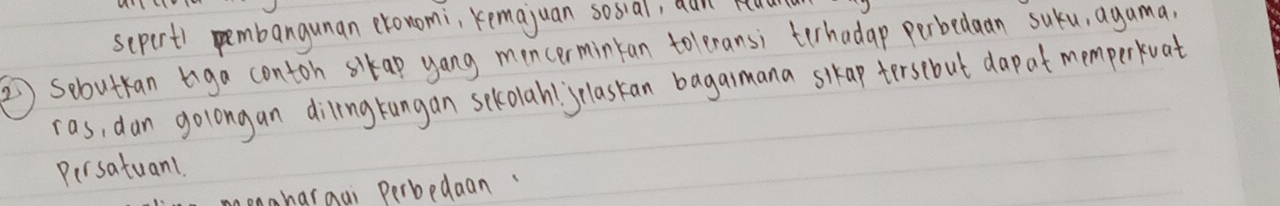 seperti pembangunan ekonomi, kemajuan sosial, dan
2) Sebutkan tiga contoh sikap yang mencerminkan toleransi terhadap perbedaan suku, agama,
ras, dan golongan dilingkungan sekolah! jelaskan bagaimana sikap tersebut dapat memperkuat
Persatuan!.
menghargai Perbedaan